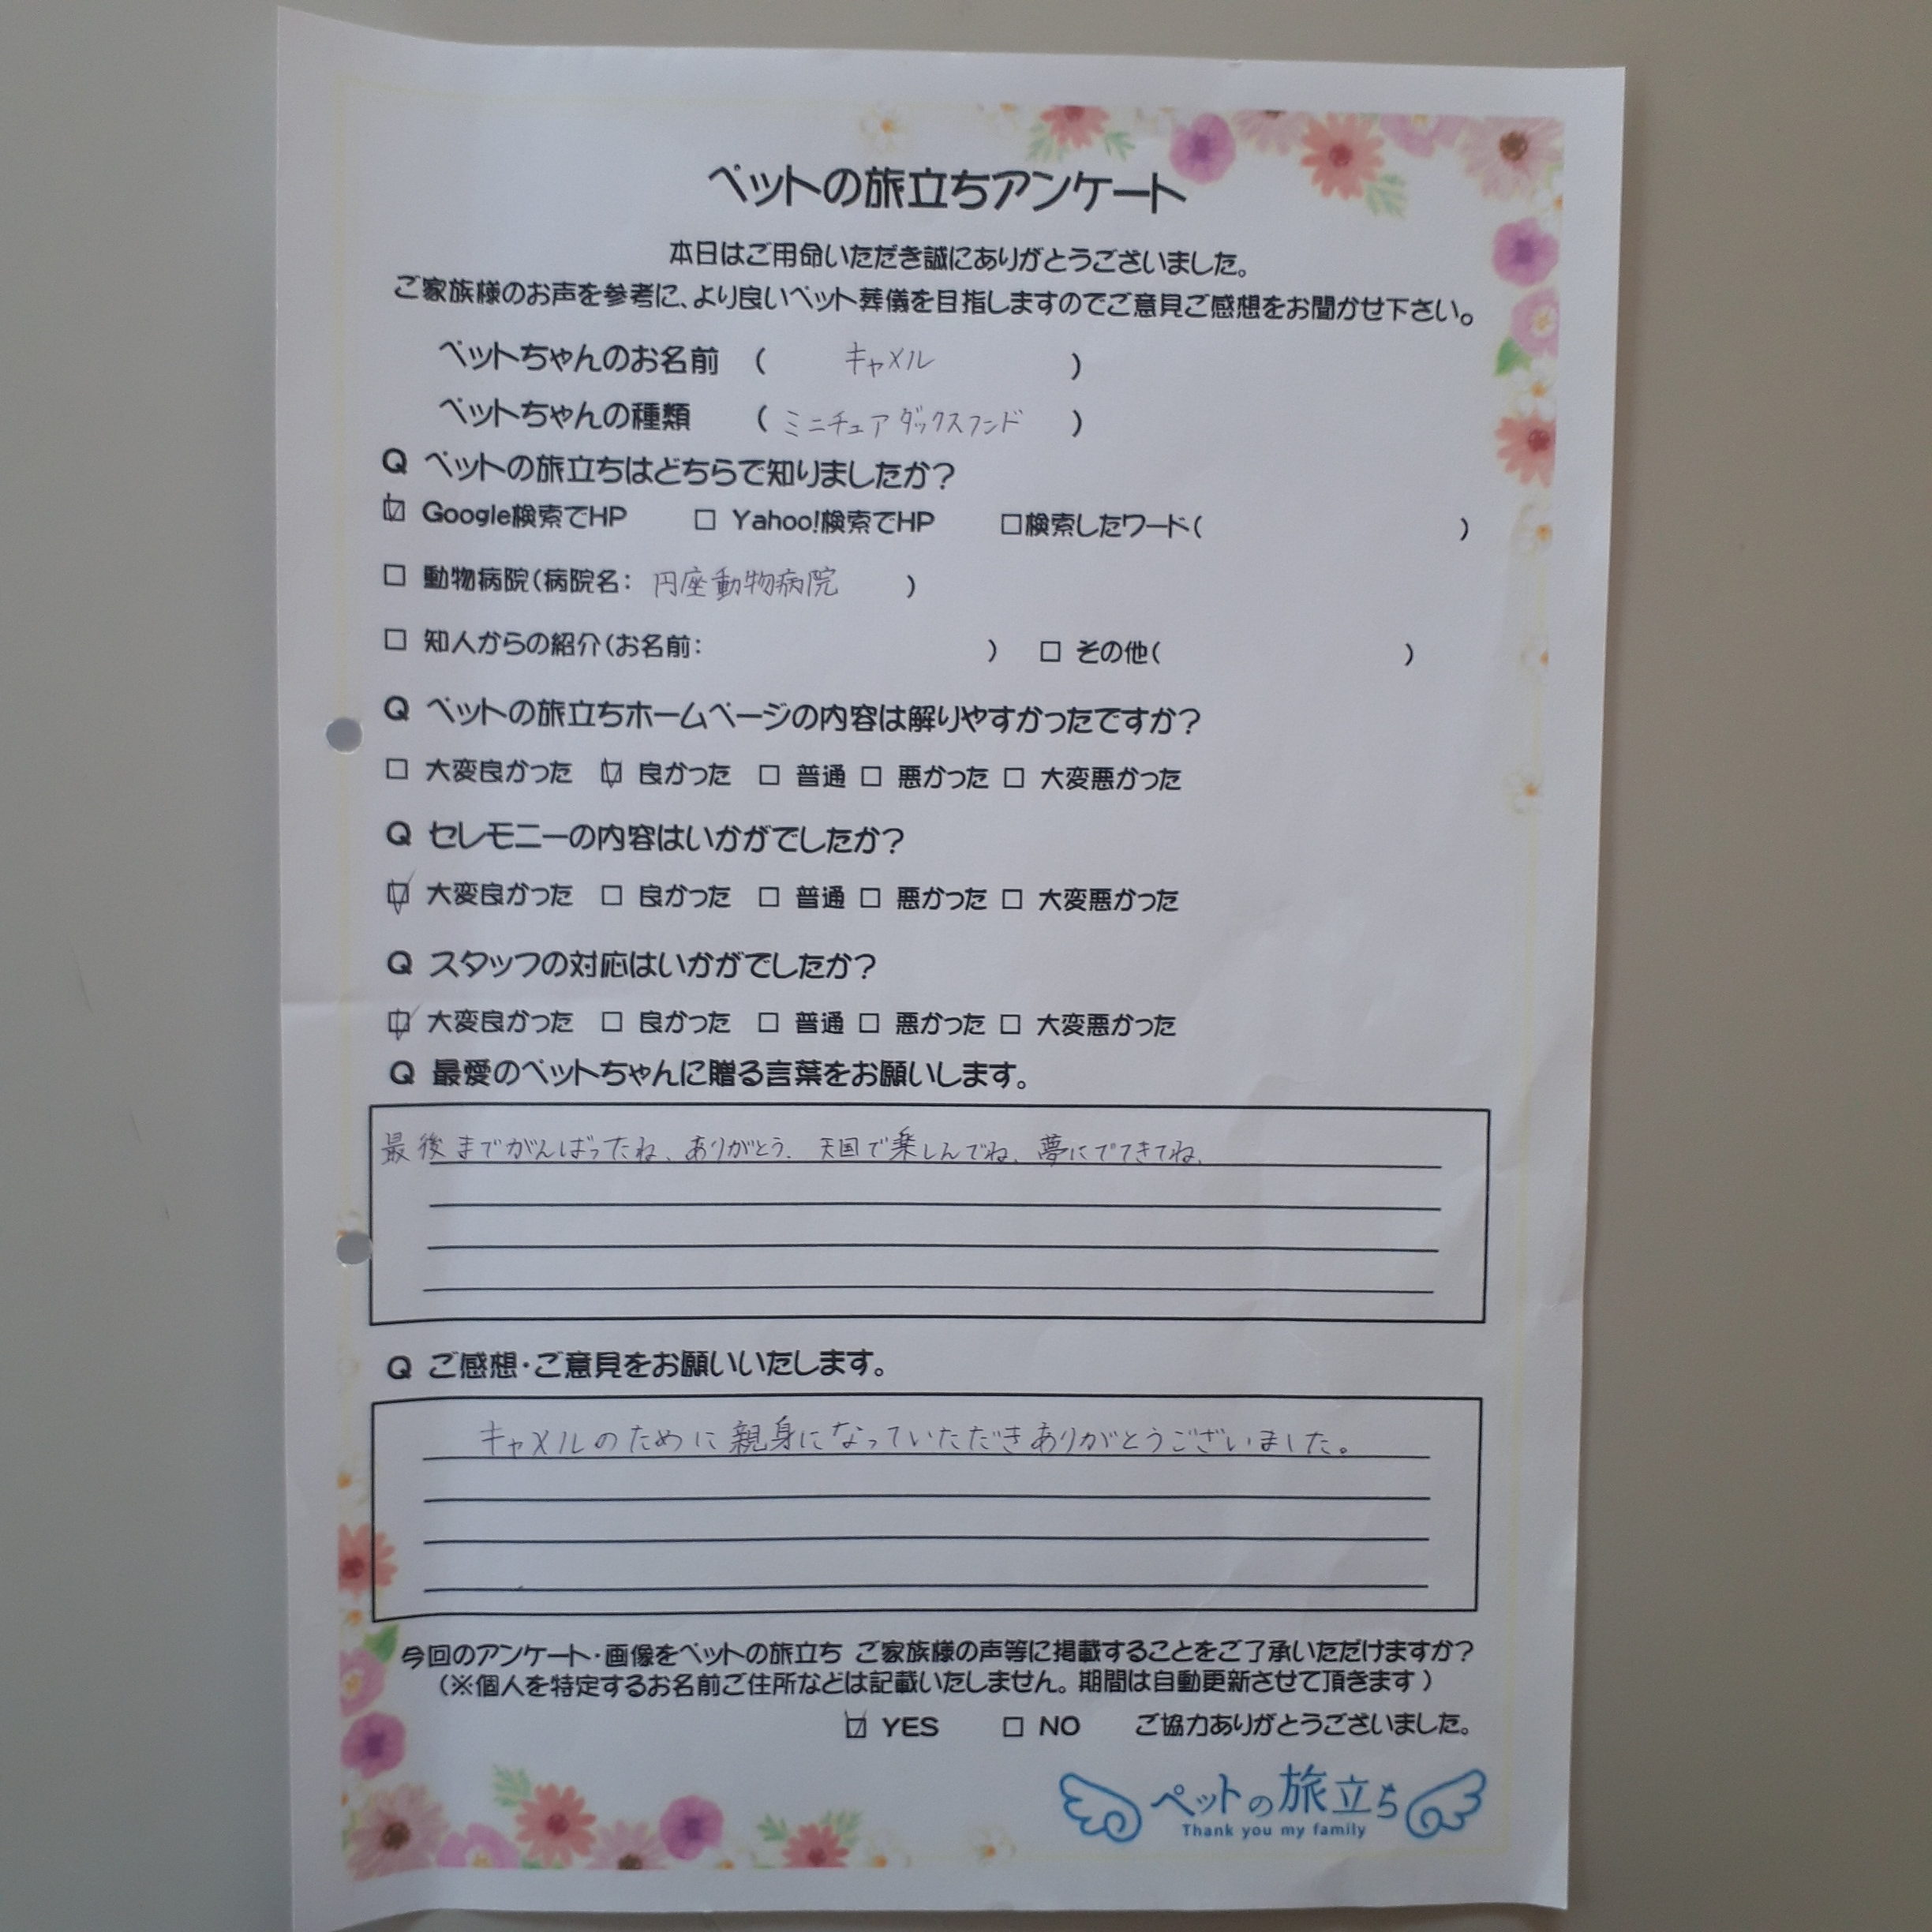 ペットの旅立ちアンケート
本日はご用命いただき誠にありがとうございました。
ご家族様のお声を参考に、より良いペット葬儀を目指しますのでご意見ご感想をお聞かせ下さい。
ペットちゃんのお名前 ( キャメル )
ペットちゃんの種類 ( ミニチュアダックスフンド )
Q ペットの旅立ちはどちらで知りましたか?
☑ Google検索でHP □ Yahoo!検索でHP □検索したワード( )
□ 動物病院(病院名: 円座動物病院 )
□ 知人からの紹介(お名前: ) □ その他( )
Q ペットの旅立ちホームページの内容は解りやすかったですか?
□ 大変良かった ☑ 良かった □ 普通 □ 悪かった □ 大変悪かった
Q セレモニーの内容はいかがでしたか?
☑ 大変良かった □ 良かった □ 普通 □ 悪かった □ 大変悪かった
Q スタッフの対応はいかがでしたか?
☑ 大変良かった □ 良かった □ 普通 □ 悪かった □ 大変悪かった
Q 最愛のペットちゃんに贈る言葉をお願いします。
最後までがんばったね、ありがとう。天国で楽しんでね、夢にでてきてね、
Q ご感想・ご意見をお願いいたします。
キャメルのために親身になっていただきありがとうございました。
今回のアンケート・画像をペットの旅立ち ご家族様の声等に掲載することをご了承いただけますか?
(※個人を特定するお名前ご住所などは記載いたしません。期間は自動更新させて頂きます)
☑ YES □ NO ご協力ありがとうございました。
ペットの旅立ち
Thank you my family